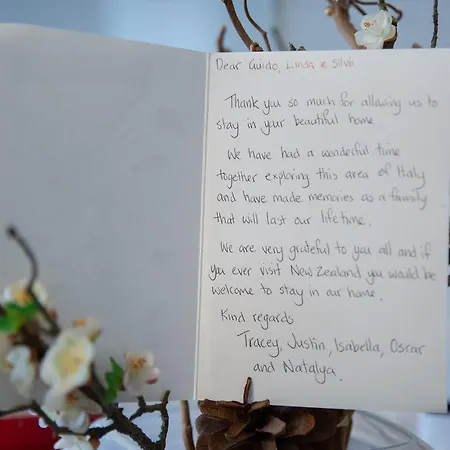 Dear Guido, Linda e Silvó
Thank you so much for allowing us to
stay in your beautiful home.
We have had a wonderful time
together exploring this area of Italy
and have made memories as a family
that will last our lifetime.
We are very grateful to you all and if
you ever visit New Zealand you would be
welcome to stay in our home.
Kind regards
Tracey, Justin, Isabella, Oscar
and Natalya.